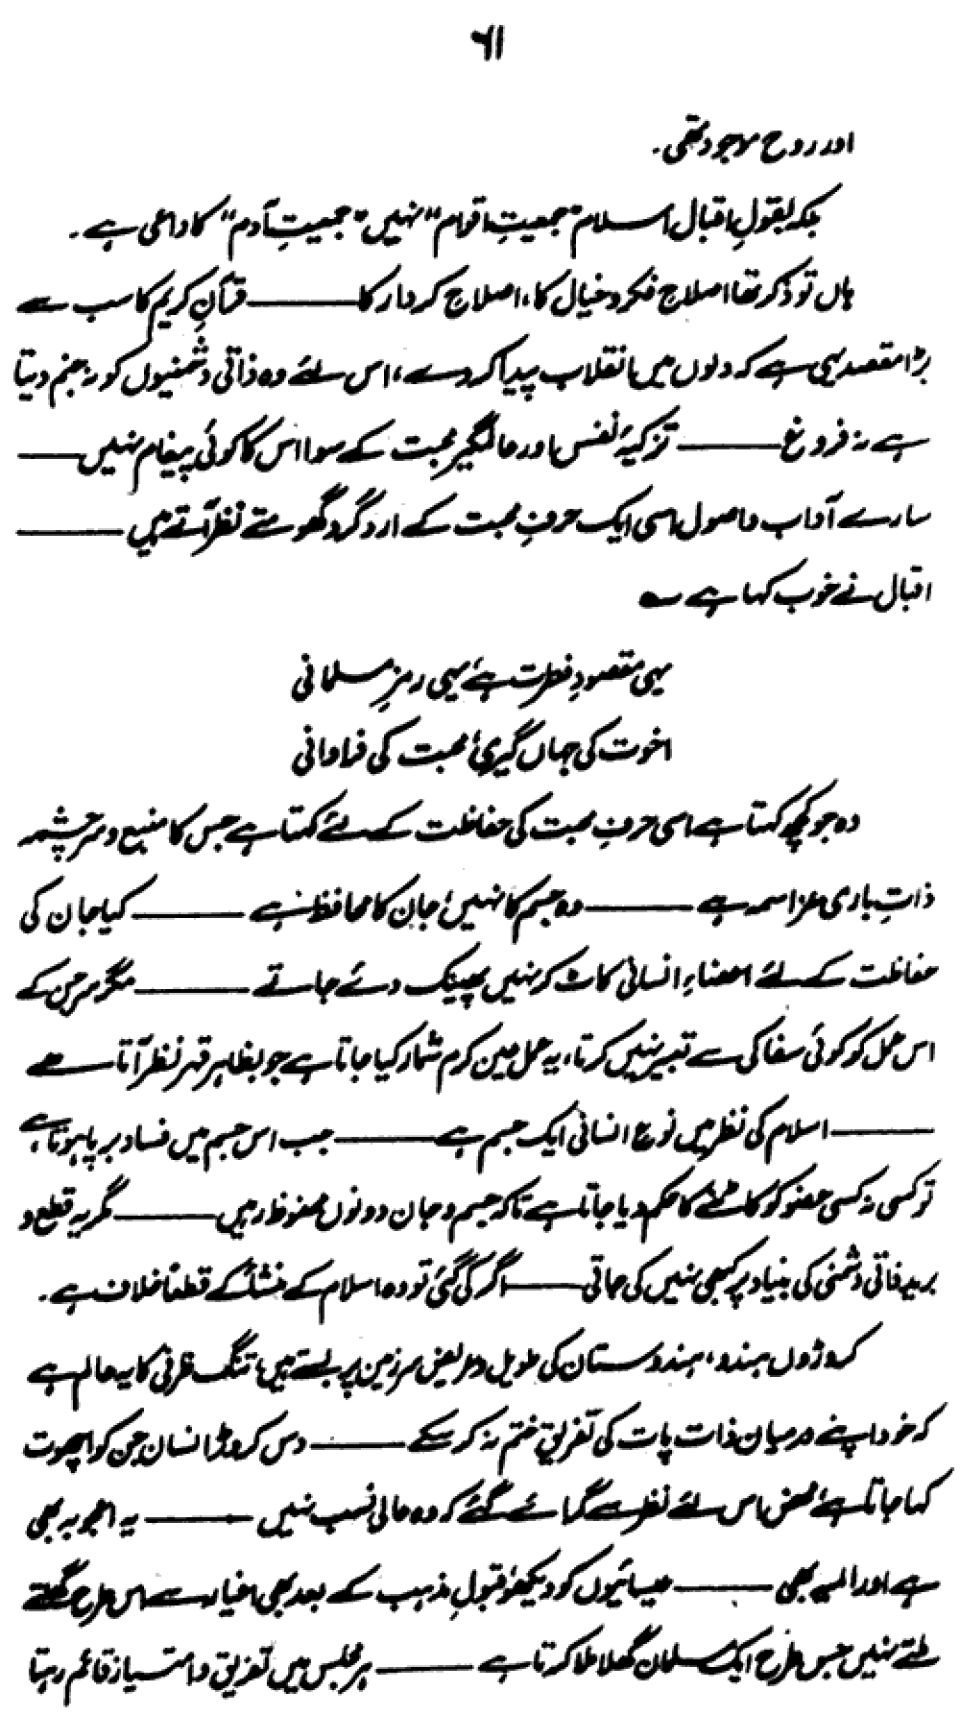 ۶۱
اور روح موجود تھی۔
بلکہ بقولِ اقبال اسلام "جمعیتِ اقوام" نہیں "جمعیتِ آدم" کا داعی ہے۔
ہاں تو ذکر تھا اصلاحِ فکر و خیال کا، اصلاحِ کردار کا ——— قرآنِ کریم کا سب سے
بڑا مقصد یہی ہے کہ دلوں میں انقلاب پیدا کر دے، اس لئے وہ ذاتی دشمنیوں کو نہ جنم دیتا
ہے نہ فروغ ——— تزکیۂ نفس اور عالمگیر محبت کے سوا اس کا کوئی پیغام نہیں ———
سارے آداب و اصول اسی ایک حرفِ محبت کے ارد گرد گھومتے نظر آتے ہیں ———
اقبال نے خوب کہا ہے ؎
یہی مقصودِ فطرت ہے، یہی رمزِ مسلمانی
اخوت کی جہاں گیری، محبت کی فراوانی
وہ جو کچھ کہتا ہے اسی حرفِ محبت کی حفاظت کے لئے کہتا ہے جس کا منبع و سرچشمہ
ذاتِ باری عزاسمہ ہے ——— وہ جسم کا نہیں، جان کا محافظ ہے ——— کیا جان کی
حفاظت کے لئے اعضاءِ انسانی کاٹ کر نہیں پھینک دئے جاتے ——— مگر سرجن کے
اس عمل کو کوئی سفاکی سے تعبیر نہیں کرتا، یہ عمل عین کرم شمار کیا جاتا ہے جو بظاہر قہر نظر آتا ہے
——— اسلام کی نظر میں نوع انسانی ایک جسم ہے ——— جب اس جسم میں فساد برپا ہوتا ہے
تو کسی نہ کسی عضو کو کاٹنے کا حکم دیا جاتا ہے تاکہ جسم و جان دونوں محفوظ رہیں ——— مگر یہ قطع و
برید ذاتی دشمنی کی بنیاد پر کبھی نہیں کی جاتی ——— اگر کی گئی تو وہ اسلام کے منشأ کے قطعاً خلاف ہے۔
کروڑوں ہندو، ہندوستان کی طویل و عریض سرزمین پر بستے ہیں، تنگ ظرفی کا یہ عالم ہے
کہ خود اپنے درمیان ذات پات کی تفریق ختم نہ کر سکے ——— دس کروڑ انسان جن کو اچھوت
کہا جاتا ہے، محض اس لئے نظر سے گرائے گئے کہ وہ عالی نسب نہیں ——— یہ اعجوبہ بھی
ہے اور المیہ بھی ——— عیسائیوں کو دیکھو، قبولِ مذہب کے بعد بھی اغیار سے اس طرح گھلتے
ملتے نہیں جس طرح ایک مسلمان گھلا ملا کرتا ہے ——— ہر مجلس میں تفریق و امتیاز قائم رہتا